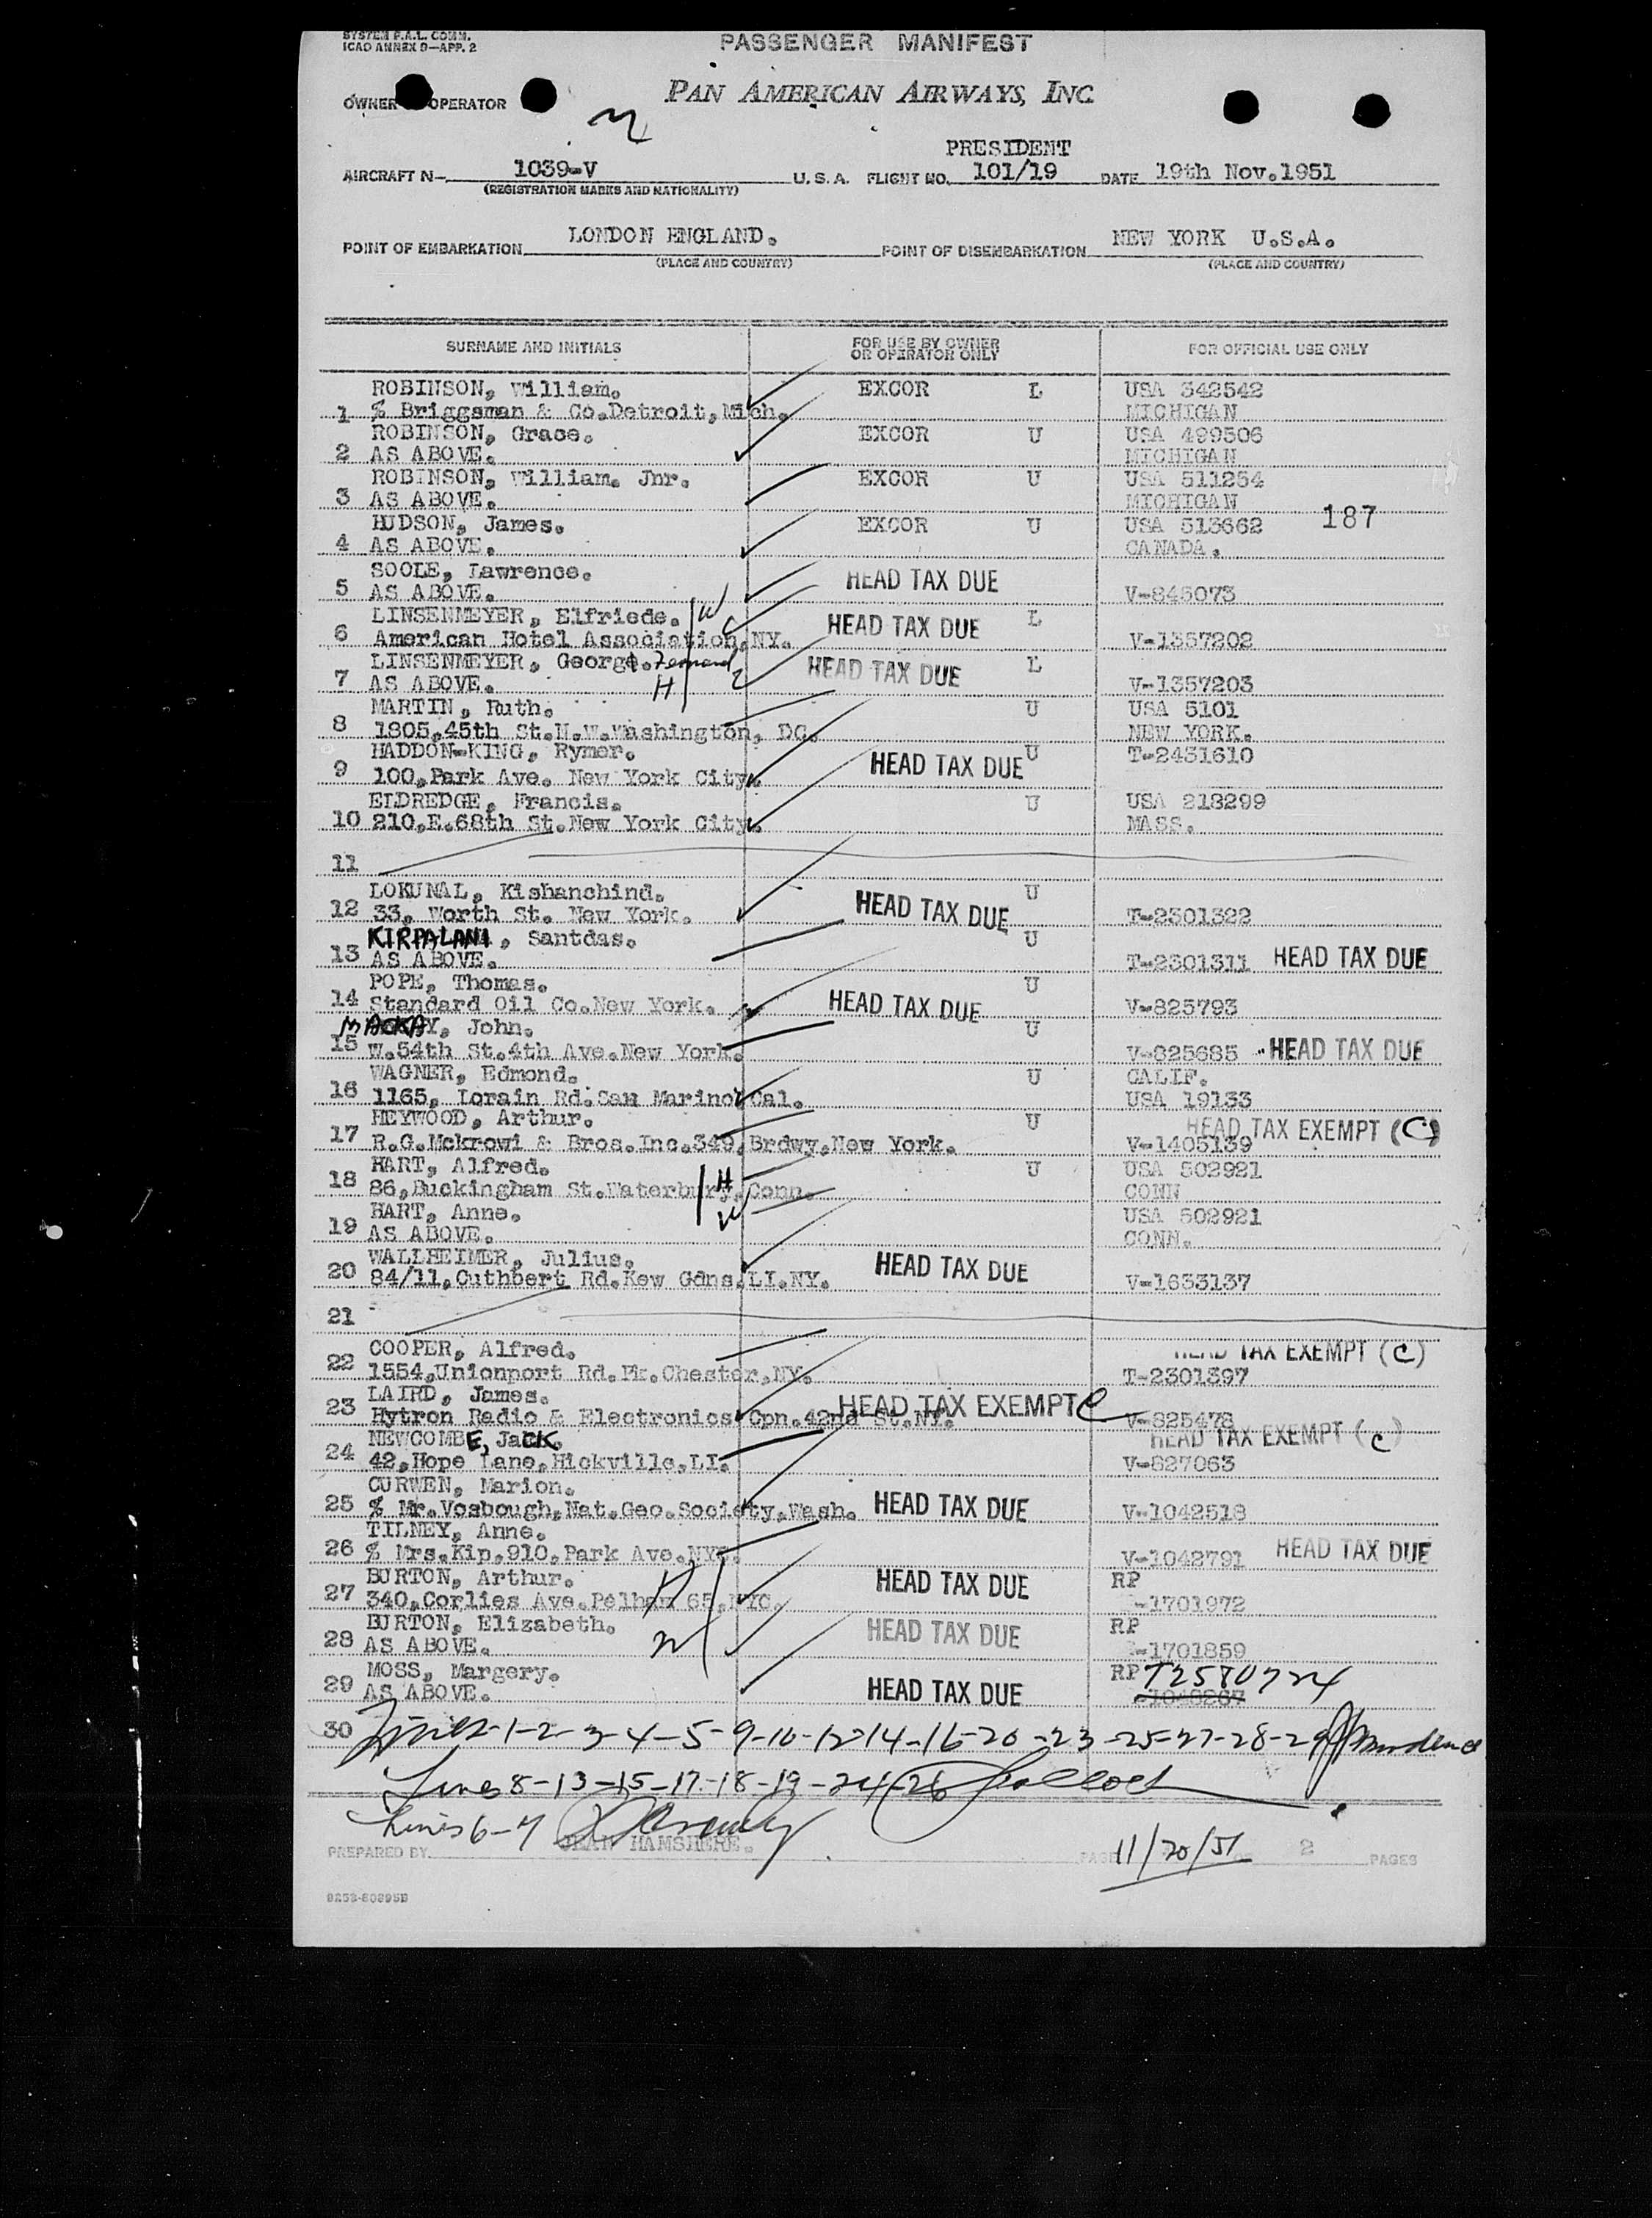 SYSTEM F.A.L. COMM.
ICAO ANNEX 9—APP. 2
PASSENGER MANIFEST
OWNER OPERATOR
PAN AMERICAN AIRWAYS, INC.
PRESIDENT
AIRCRAFT N— 1039-V U.S.A. FLIGHT NO. 101/19 DATE 19th Nov.1951
(REGISTRATION MARKS AND NATIONALITY)
POINT OF EMBARKATION LONDON ENGLAND. POINT OF DISEMBARKATION NEW YORK U.S.A.
(PLACE AND COUNTRY) (PLACE AND COUNTRY)
SURNAME AND INITIALS FOR USE BY OWNER OR OPERATOR ONLY FOR OFFICIAL USE ONLY
ROBINSON, William. EXCOR L USA 342542
1 % Briggsman & Co.Detroit,Mich. MICHIGAN
ROBINSON, Grace. EXCOR U USA 499506
2 AS ABOVE. MICHIGAN
ROBINSON, William. Jnr. EXCOR U USA 511254
3 AS ABOVE. MICHIGAN
HUDSON, James. EXCOR U USA 513662 187
4 AS ABOVE. CANADA.
SOOLE, Lawrence. HEAD TAX DUE
5 AS ABOVE. V-845073
LINSENMEYER, Elfriede. W HEAD TAX DUE L
6 American Hotel Association,NY. V-1357202
LINSENMEYER, George. HEAD TAX DUE L
7 AS ABOVE. H V-1357203
MARTIN, Ruth. U USA 5101
8 1805,45th St.N.W.Washington, DC. NEW YORK.
HADDON-KING, Rymer. HEAD TAX DUE U T-2431610
9 100,Park Ave. New York City.
ELDREDGE, Francis. U USA 218299
10 210,E.68th St.New York City. MASS.
11
LOKUMAL, Kishanchind. HEAD TAX DUE U
12 33, Worth St. New York. T-2301322
KIRPALANI, Santdas. U
13 AS ABOVE. T-2301311 HEAD TAX DUE
POPE, Thomas. U
14 Standard Oil Co.New York. HEAD TAX DUE V-825793
MACKAY, John. U
15 W.54th St.4th Ave.New York. V-825685 HEAD TAX DUE
WAGNER, Edmond. U CALIF.
16 1165, Lorain Rd.San Marino,Cal. USA 19133
HEYWOOD, Arthur. U HEAD TAX EXEMPT (C)
17 R.G.Mckrowi & Bros.Inc.349,Brdwy,New York. V-1405139
HART, Alfred. H U USA 502921
18 86,Buckingham St.Waterbury,Conn. CONN
HART, Anne. W USA 502921
19 AS ABOVE. CONN.
WALLHEIMER, Julius. HEAD TAX DUE
20 84/11,Cuthbert Rd.Kew Gdns.LI.NY. V-1633137
21
COOPER, Alfred. HEAD TAX EXEMPT (C)
22 1554,Unionport Rd.Pk.Chester,NY. T-2301397
LAIRD, James. HEAD TAX EXEMPT C
23 Hytron Radio & Electronics Cpn.42nd St.NY. V-825478
NEWCOMBE, JACK. HEAD TAX EXEMPT (C)
24 42,Hope Lane,Hickville,LI. V-827063
CURWEN, Marion.
25 % Mr.Vosbough,Nat.Geo.Society,Wash. HEAD TAX DUE V-1042518
TILNEY, Anne.
26 % Mrs.Kip,910,Park Ave.NYC. V-1042791 HEAD TAX DUE
BURTON, Arthur. H HEAD TAX DUE RP
27 340,Corlies Ave.Pelham 65,NYC. -1701972
BURTON, Elizabeth. HEAD TAX DUE RP
28 AS ABOVE. W -1701859
MOSS, Margery. RP T2580724
29 AS ABOVE. HEAD TAX DUE
30 Lines-1-2-3-4-5-9-10-12-14-16-20-23-25-27-28-29
Lines 8-13-15-17-18-19-24-26
Lines 6-7
PREPARED BY JEAN HAMSHERE. PAGE 11/20/51 OF 2 PAGES